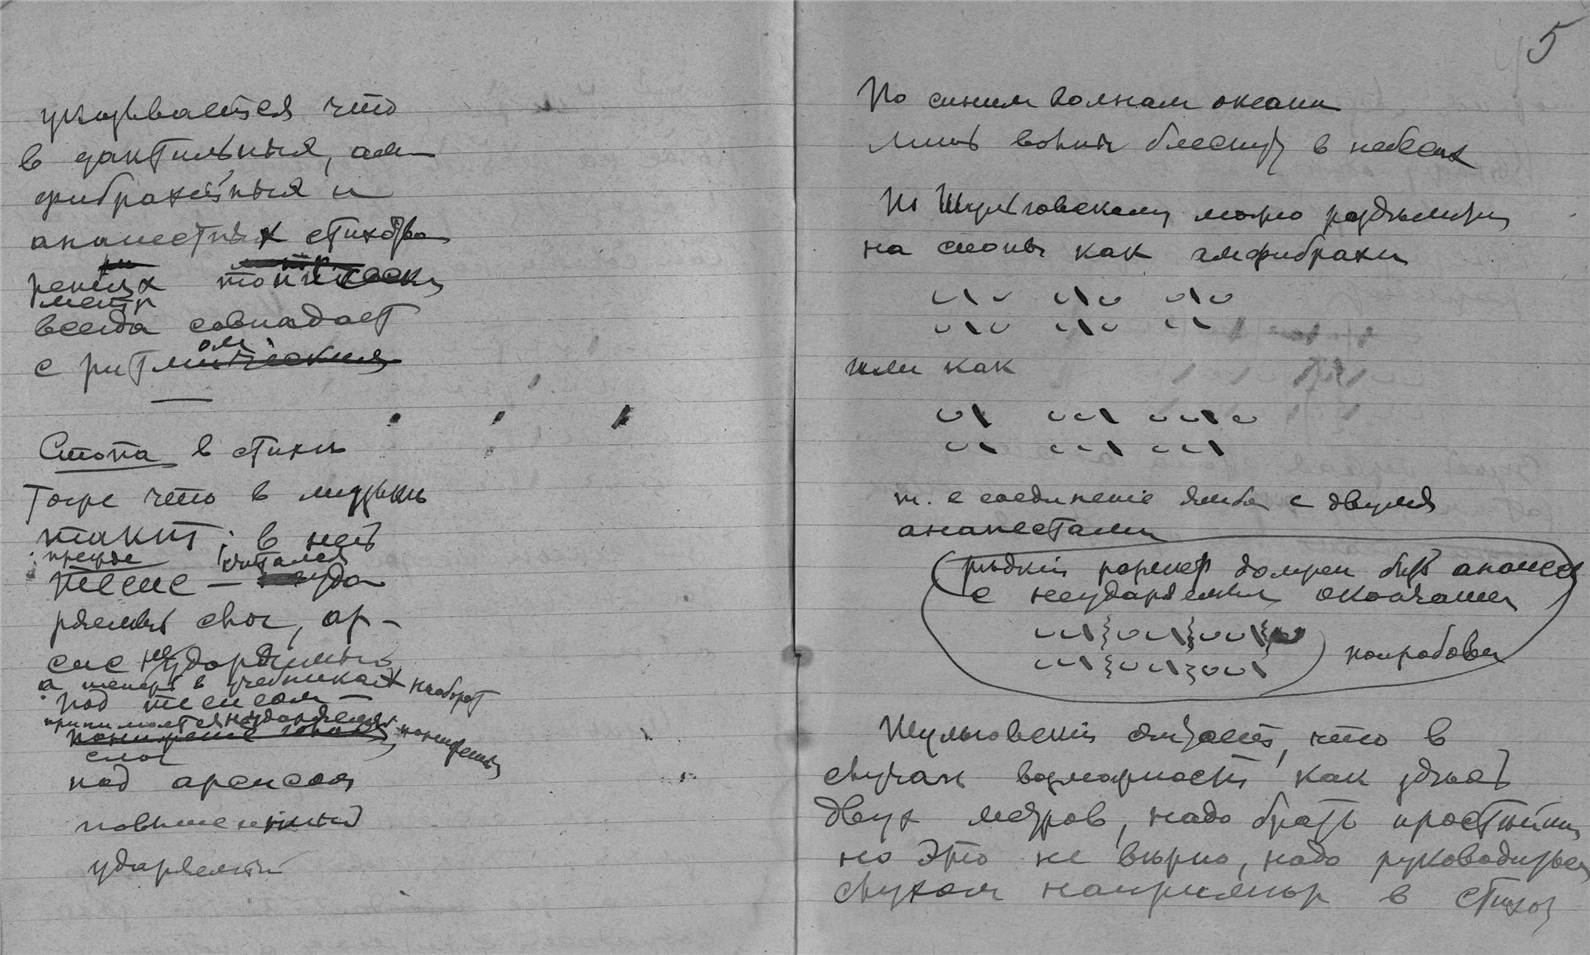 указывается что
в дактильных, ам-
фибрахейных и
анапестных стихотво
рениях
метр
всегда совпадает
с ритмом
Стопа в стихе
тоже что в музыке
такт; в ней
прежде считался
тезис — уда
ряемый слог, ар-
сис неударяемый
а теперь в учебниках наоборот
под тезисом —
принимается неударяемый
слог
под арсисом
повышенный
ударяемый
5
По синим волнам океана
лишь звезды блеснут в небесах
По Шульговскому можно разделить
на стопы как амфибрахи
◡\◡ ◡\◡ ◡\◡
◡\◡ ◡\◡ ◡\
или как
◡\ ◡◡\ ◡◡\◡
◡\ ◡◡\ ◡◡\
т. е соединение ямба с двумя
анапестами
редкий размер должен быть анапест
с неударяемым окончанием
◡◡\ ◡◡\ ◡◡\
◡◡\ ◡◡\ ◡◡\
попробовать
Шульговский что в
случаях возможности как здесь
двух метров, надо брать простейший
но это не верно, надо руководиться
слухом например в стихах